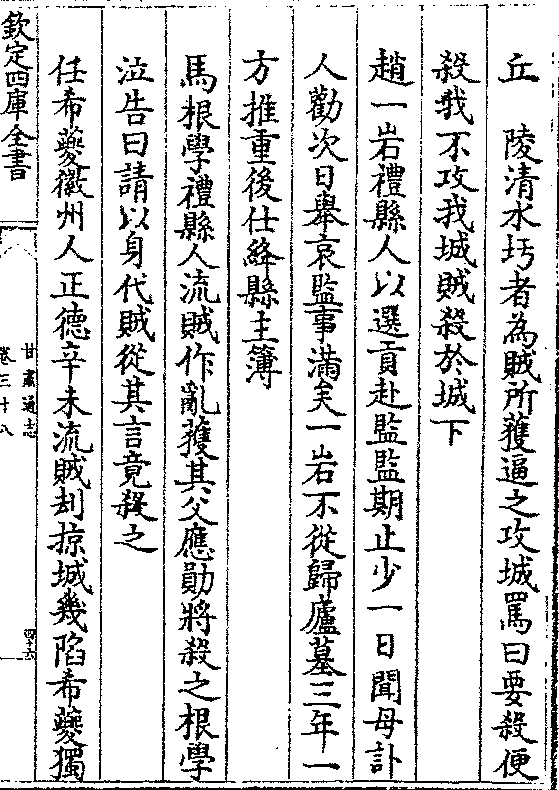 丘　陵清水圬者為賊所獲逼之攻城罵曰要殺便
殺我不攻我城賊殺於城下
趙一岩禮縣人以選貢赴監監期止少一日聞母訃
人勸次日舉哀監事滿矣一岩不從歸廬墓三年一
方推重後仕絳縣主簿
馬根學禮縣人流賊作亂獲其父應勛將殺之根學
泣告曰請以身代賊從其言竟殺之
任希夔徽州人正德辛未流賊刦掠城幾陷希夔獨
欽定四庫全書
甘肅通志
卷三十八